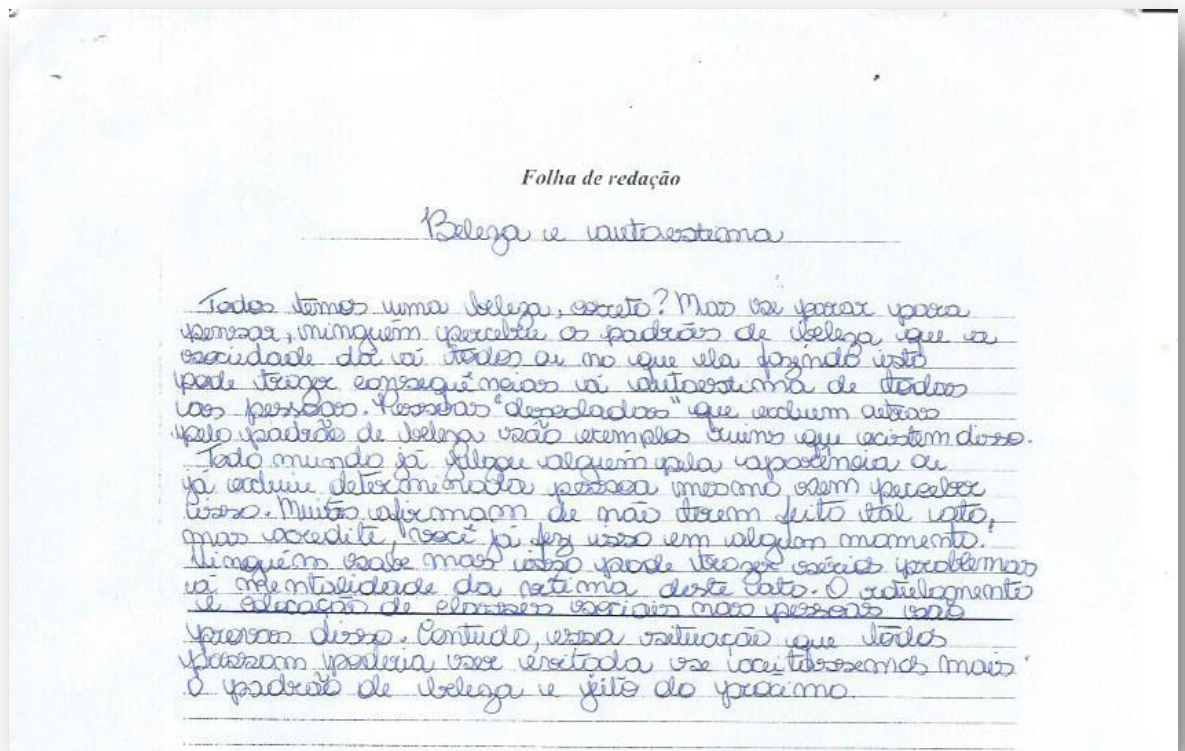 Folha de redação
Beleza e autoestima
Todos temos uma beleza, correto? Mas se parar para
pensar, ninguém percebeu os padrões de beleza que a
sociedade dá á todos ou no que ela fazendo isto
pode trazer consequências á autoestima de todas
as pessoas. Pessoas "descoladas" que excluem outras
pelo padrão de beleza são exemplos ruins que existem disso.
Todo mundo já julgou alguém pela aparência ou
já excluiu determinada pessoa mesmo sem perceber
isso. Muitos afirmam de não terem feito tal ato,
mas acredite, você já fez isso em algum momento.
Ninguém sabe mas isso pode trazer sérios problemas
á mentalidade da vítima deste ato. O
e colocação de classes sociais nas pessoas são
provas disso. Contudo, essa situação que todos
passam poderia ser evitada se aceitassemos mais
o padrão de beleza e jeito do próximo.